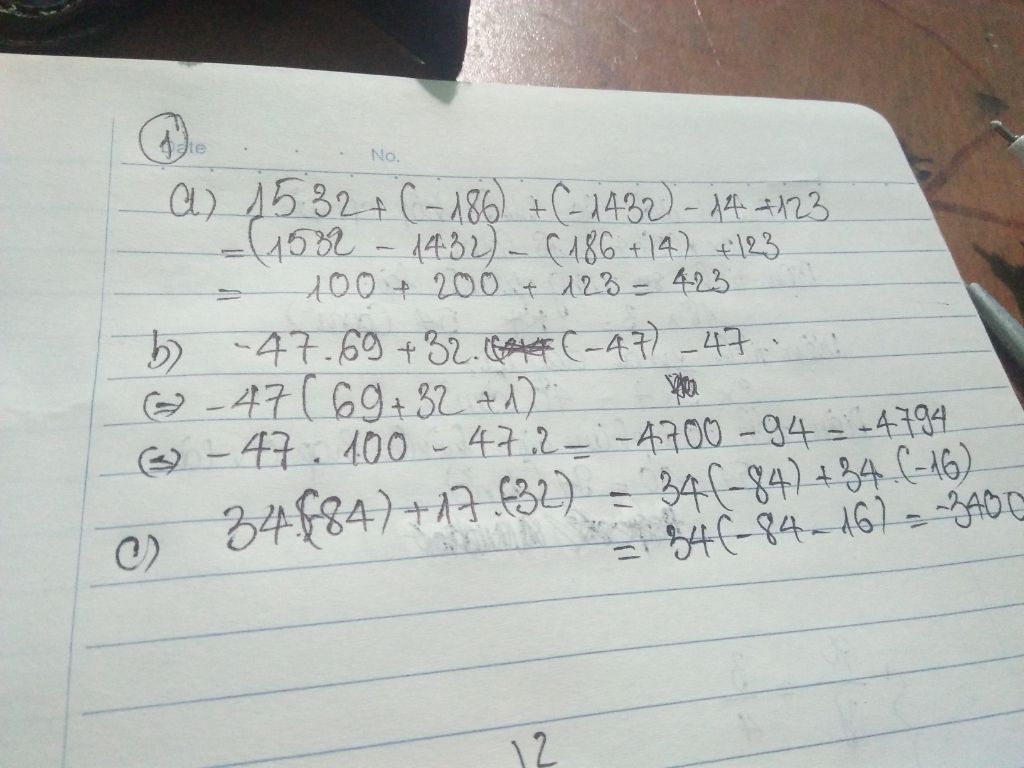 1
Date No.
a) 1532 + (-186) + (-1432) - 14 + 123
= (1532 - 1432) - (186 + 14) + 123
= 100 + 200 + 123 = 423
b) -47.69 + 32. (-47) - 47.
(=) -47 (69 + 32 + 1)
(=) -47. 100 - 47.2 = -4700 - 94 = -4794
c) 34.(-84) + 17.(-32) = 34(-84) + 34.(-16)
= 34(-84 - 16) = -3400
12